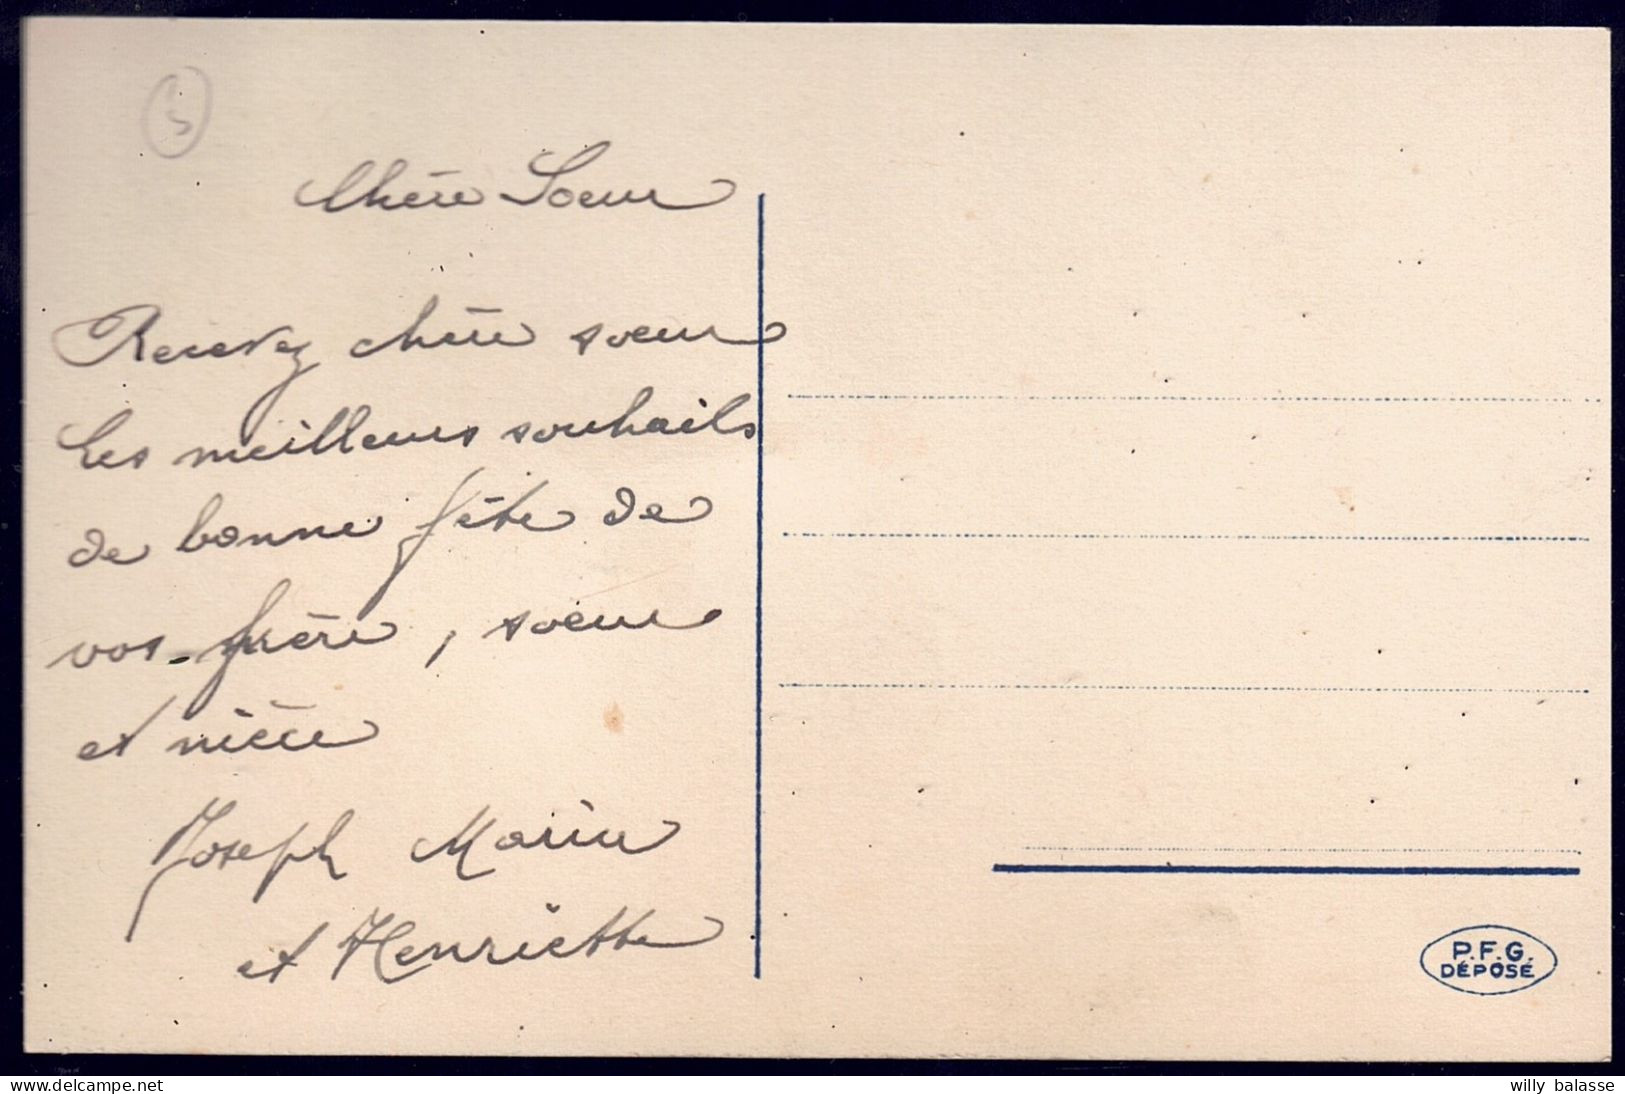 5
Chère Soeur
Recevez chère soeur
les meilleurs souhaits
de bonne fête de
vos frère, soeur
et nièce
Joseph Maria
et Henriette
P.F.G.
DÉPOSÉ
willy balasse